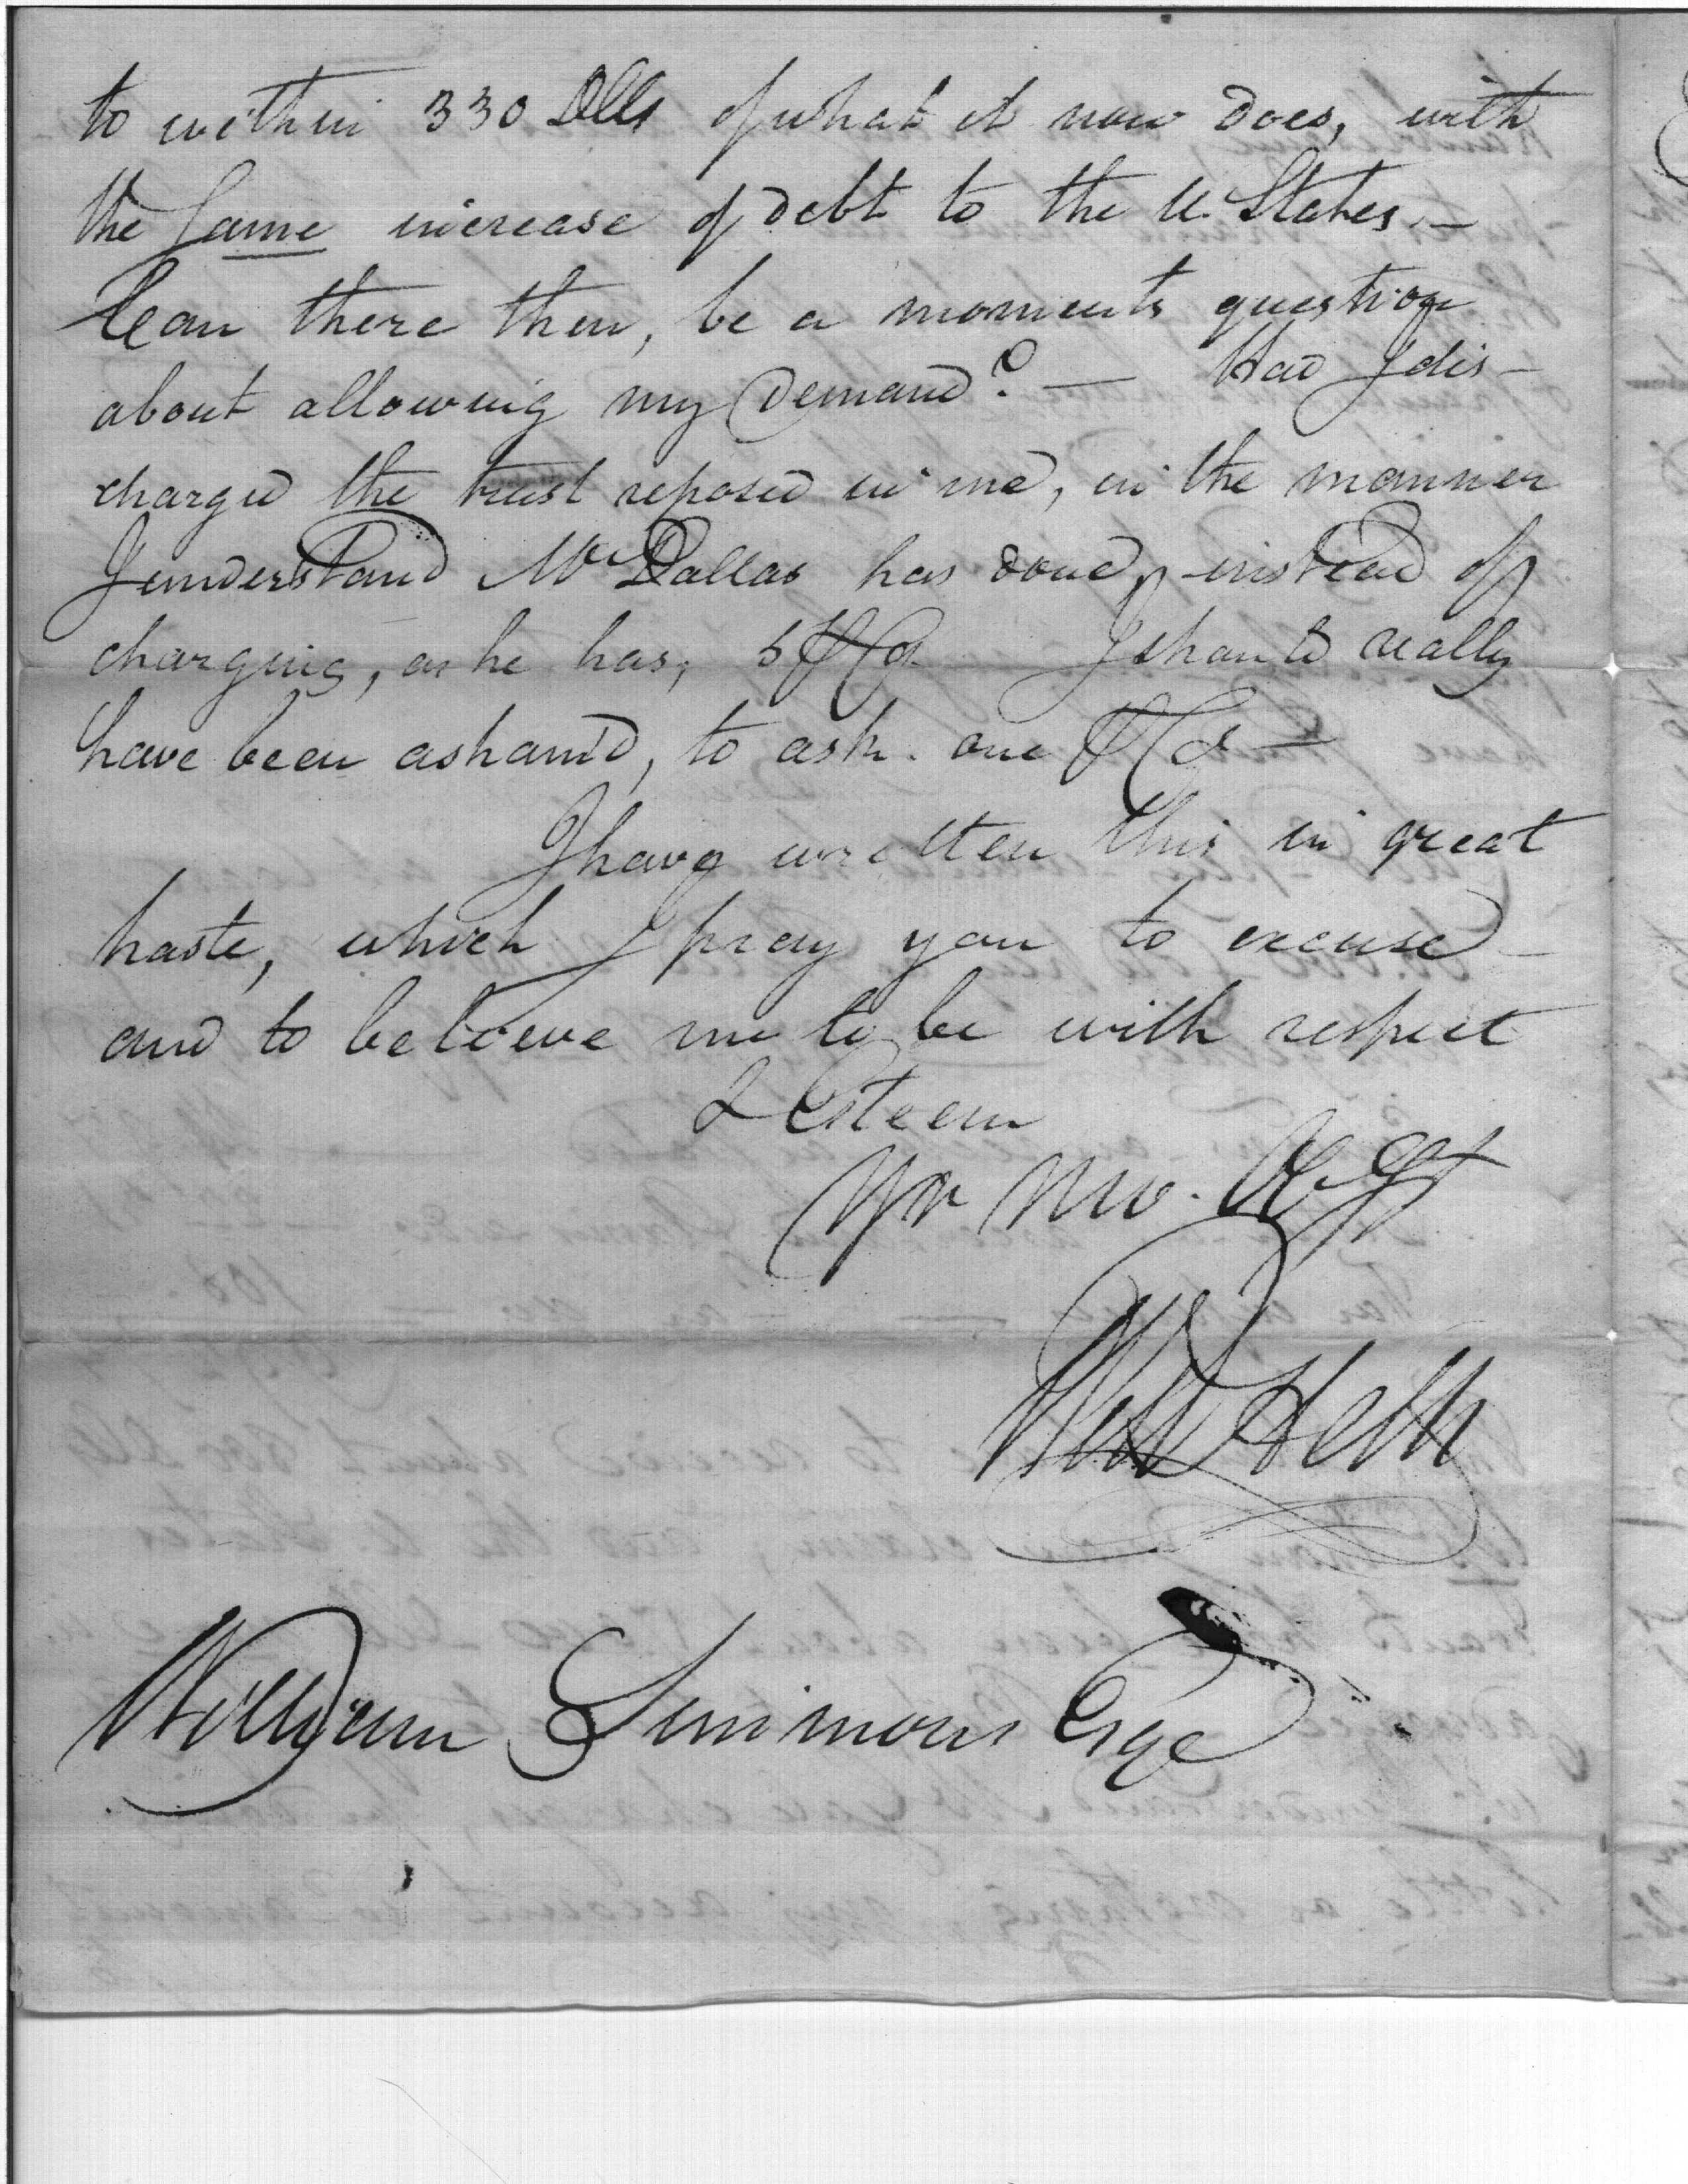 to within 330 Dlls of what it now does, with
the Same increase of debt to the U. States. —
Can there then, be a moments question
about allowing my Demand? — Had I dis-
charged the trust reposed in me, in the manner
I understand Mr Dallas has done, instead of
charging, as he has, 5 I should really
have been asham'd, to ask one
I have written this in great
haste, which I pray you to excuse —
and to believe me to be with respect
& Esteem
Yr Mo.
Will Heth
William Simmons Esqe